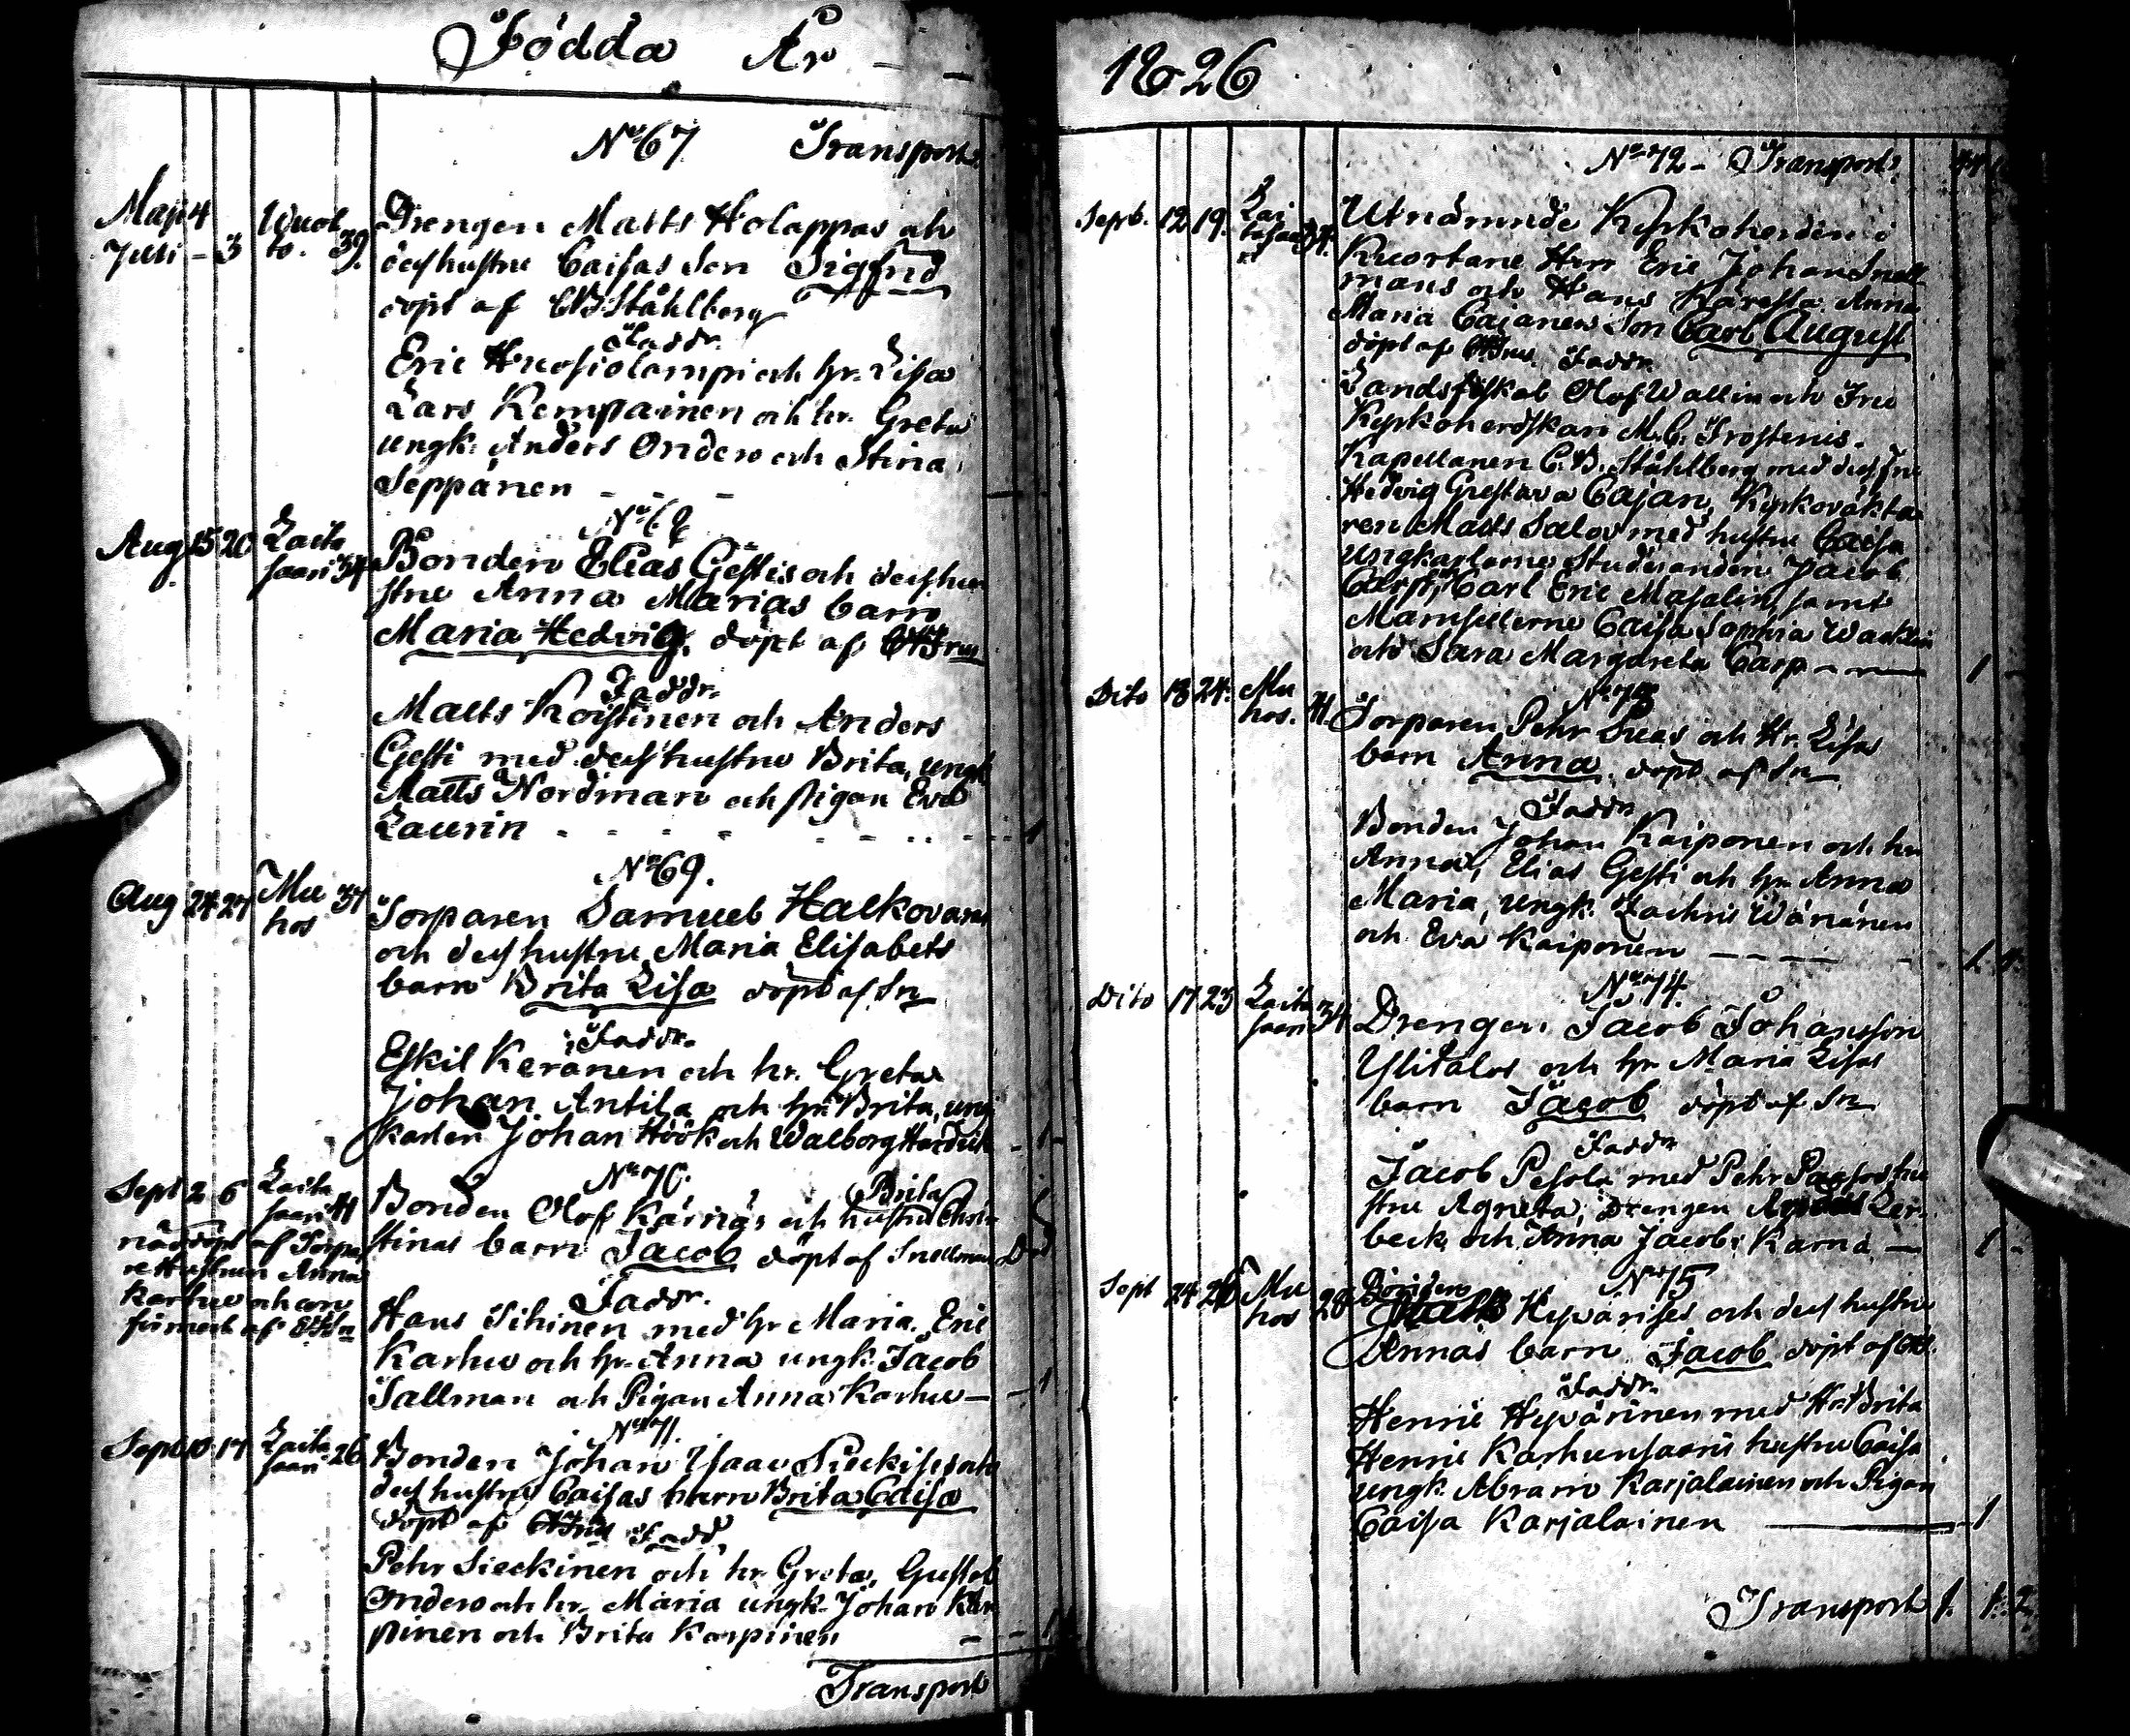 Födda År
No 67 Transport
Maji 4 Uleå Drengen Matts Holappas och
Juli - 3 to. 39. des hustru Caisas Son Sigfrid
döpt af CB Ståhlberg
Faddr.
Eric Huosiolampi och hr. Lisa
Lars Kempainen och hr. Greta
ungk. Anders Onden och Stina
Seppänen
No 68
Aug 15 20 Laita Bonden Elias Gestis och des hu
saari 34 stru Anna Marias barn
Maria Hedvig, döpt af
Faddr.
Matts Koistinen och Anders
Gesti med des hustru Brita, ungk
Matts Nordman och pigan Eva
Laurin 1
No 69.
Aug 24 27 Mu 37 Torparen Samuel Halkovaras
hos och des hustru Maria Elisabets
barn Brita Lisa döpt af Sn
Faddr.
Eskil Keränen och hr. Greta
Johan Antila och hr. Brita, ung
karlen Johan Höök och Walborg
No 70.
Sept 2 6 Laita Bonden Olof Kärnäs och hustru Brita Chri
saari 41 stinas barn Jacob döpt af Snellman
nöddöpt af Torpa
re Hustrun Anna Faddr.
Karhu och con Hans Sihinen med hr Maria. Eric
firmerat af Karhu och hr. Anna ungk. Jacob
Sallman och Pigan Anna Karhu 1
No 71.
Sept 10 17 Laita 26 Bonden Johan Isaac Sieckises och
saari des hustru Caisas barn Brita Caisa
döpt af Fadd.
Pehr Sieckinen och hr. Greta, Gustaf
Onden och hr. Maria ungk. Johan Kar
pinen och Brita Karpinen 1
Transport
1826
No 72 - Transport
Sept. 12 19. Lai Utnämnde Kyrkoherden i
tasaa 34. Kuortane Herr Eric Johan Snell
ri mans och Hans Käresta Anna
Maria Cajanens Son Carl August
döpt af Faddr.
Landsfiskal Olof Wallin och Fru
Kyrkoherdskan M. C. Frosterus.
Kapellanen C. B. Ståhlberg med des Fru
Hedvig Gustava Cajan, Kyrkovakta
ren Matts Salov med hustru Caisa
ungkarlarne Studeranden Jacob
Carp, Carl Eric Masalin, samt
Mamsellerne Caisa Sophia Wacklin
och Sara Margareta Carp 1
No 73
Dito 13 24. Mu 41. Torparen Pehr och Hr. Lisas
hos. barn Anna döpt af Sn
Faddr
Bonden Johan Kaiponen och hr
Anna, Elias Gesti och hr. Anna
Maria, ungk. Zachris Wänänen
och Eva Kaiponen 1
No 74.
Dito 17 23 Laita 34 Drengen Jacob Johansson
saari Ylitalos och hr Maria Lisas
barn Jacob döpt af Sn
Faddr
Jacob Pesola med Pehr hu
stru Agneta, Drengen
beck och Anna Jacobs Karna 1
No 75
Sept 24 26 Mu 28 Bonden Hyvärises och des hustru
hos Annas barn Jacob döpt af
Faddr.
Henric Hyvärinen med Hr. Brita
Henric Karhunsaaris hustru Caisa
ungk. Abram Karjalainen och Pigan
Caisa Karjalainen 1
Transport 1. 1. 2